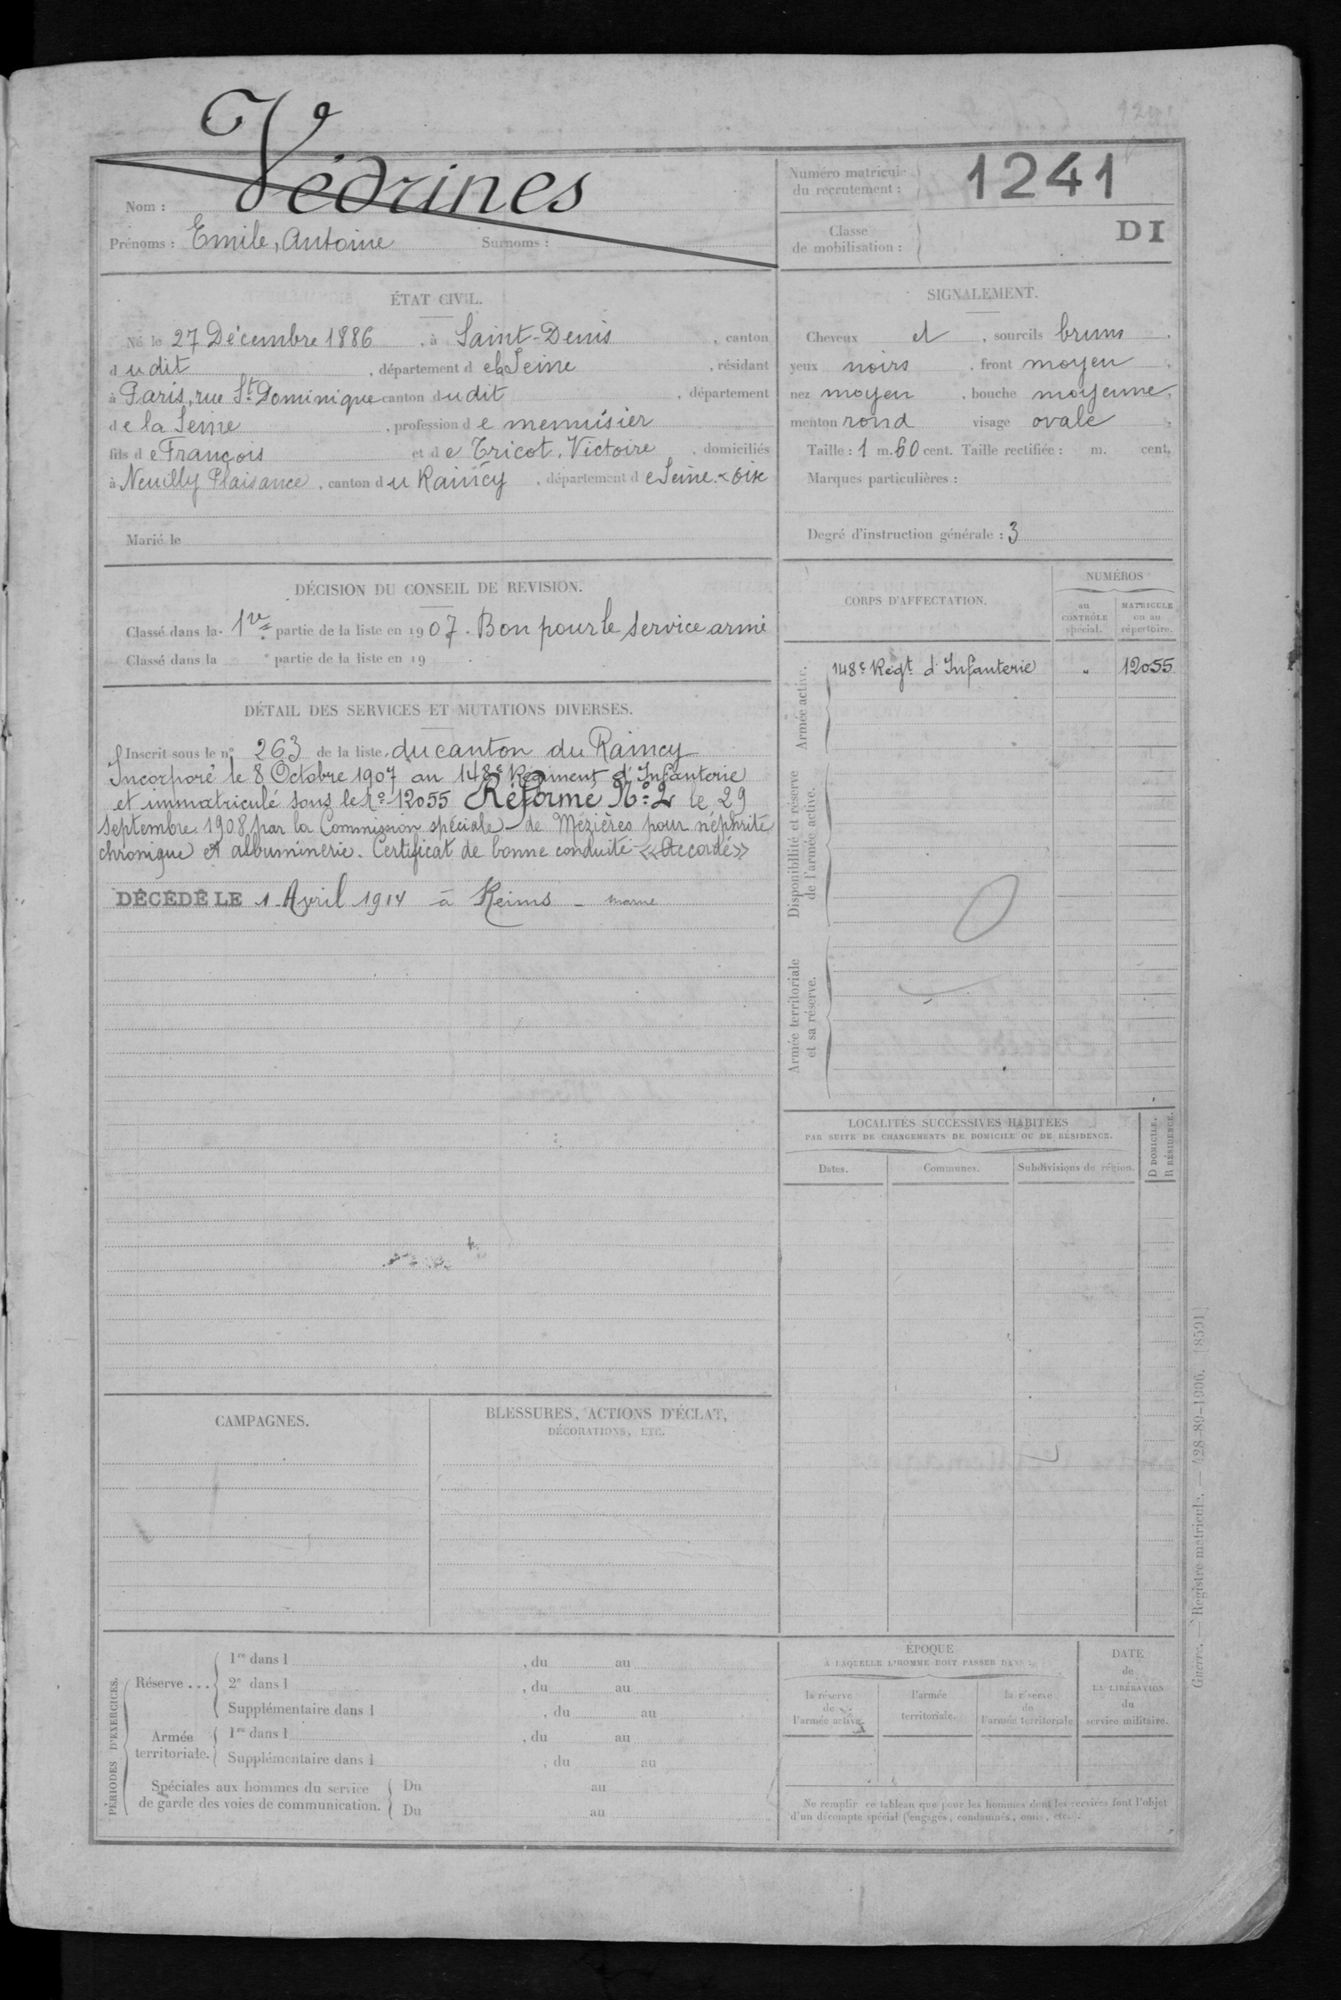 Nom : Védrines
Prénoms : Emile, Antoine Surnoms :
Numéro matricule du recrutement : 1241
Classe de mobilisation :
DI
ÉTAT CIVIL.
Né le 27 Décembre 1886, à Saint-Denis, canton
dudit, département de la Seine, résidant
à Paris, rue St Dominique canton dudit, département
de la Seine, profession de menuisier
fils de François et de Tricot, Victoire, domiciliés
à Neuilly Plaisance, canton du Raincy, département de Seine & Oise
Marié le
SIGNALEMENT.
Cheveux et, sourcils bruns,
yeux noirs, front moyen,
nez moyen, bouche moyenne,
menton rond visage ovale,
Taille : 1 m. 60 cent. Taille rectifiée : m. cent.
Marques particulières :
Degré d'instruction générale : 3
DÉCISION DU CONSEIL DE REVISION.
Classé dans la 1re partie de la liste en 1907. Bon pour le service armé
Classé dans la e partie de la liste en 19
DÉTAIL DES SERVICES ET MUTATIONS DIVERSES.
Inscrit sous le n° 263 de la liste du canton du Raincy
Incorporé le 8 Octobre 1907 au 148e Régiment d'Infanterie
et immatriculé sous le No 12055 Réformé No 2 le 29
septembre 1908 par la Commission spéciale de Mézières pour néphrite
chronique et albuminerie. Certificat de bonne conduite «Accordé»
DÉCÉDÉ LE 1 Avril 1914 à Reims - Marne
CORPS D'AFFECTATION.
NUMÉROS
au CONTRÔLE spécial.
MATRICULE ou au répertoire.
Armée active.
148e Régt d'Infanterie " 12055
Disponibilité et réserve de l'armée active.
Armée territoriale et sa réserve.
LOCALITÉS SUCCESSIVES HABITÉES
PAR SUITE DE CHANGEMENTS DE DOMICILE OU DE RÉSIDENCE.
Dates. Communes. Subdivisions de région.
D DOMICILE.
R RÉSIDENCE.
CAMPAGNES.
BLESSURES, ACTIONS D'ÉCLAT,
DÉCORATIONS, ETC.
PÉRIODES D'EXERCICES.
Réserve ... 1re dans l , du au
2e dans l , du au
Supplémentaire dans l , du au
Armée territoriale. 1re dans l , du au
Supplémentaire dans l , du au
Spéciales aux hommes du service Du au
de garde des voies de communication. Du au
ÉPOQUE
À LAQUELLE L'HOMME DOIT PASSER DANS :
la réserve de l'armée active.
l'armée territoriale.
la réserve de l'armée territoriale
DATE
de
LA LIBÉRATION
du
service militaire.
Ne remplir ce tableau que pour les hommes dont les services font l'objet
d'un décompte spécial (engagés, condamnés, omis, etc.).
Guerre. — Registre matricule. — 428-89-1906. [8591]